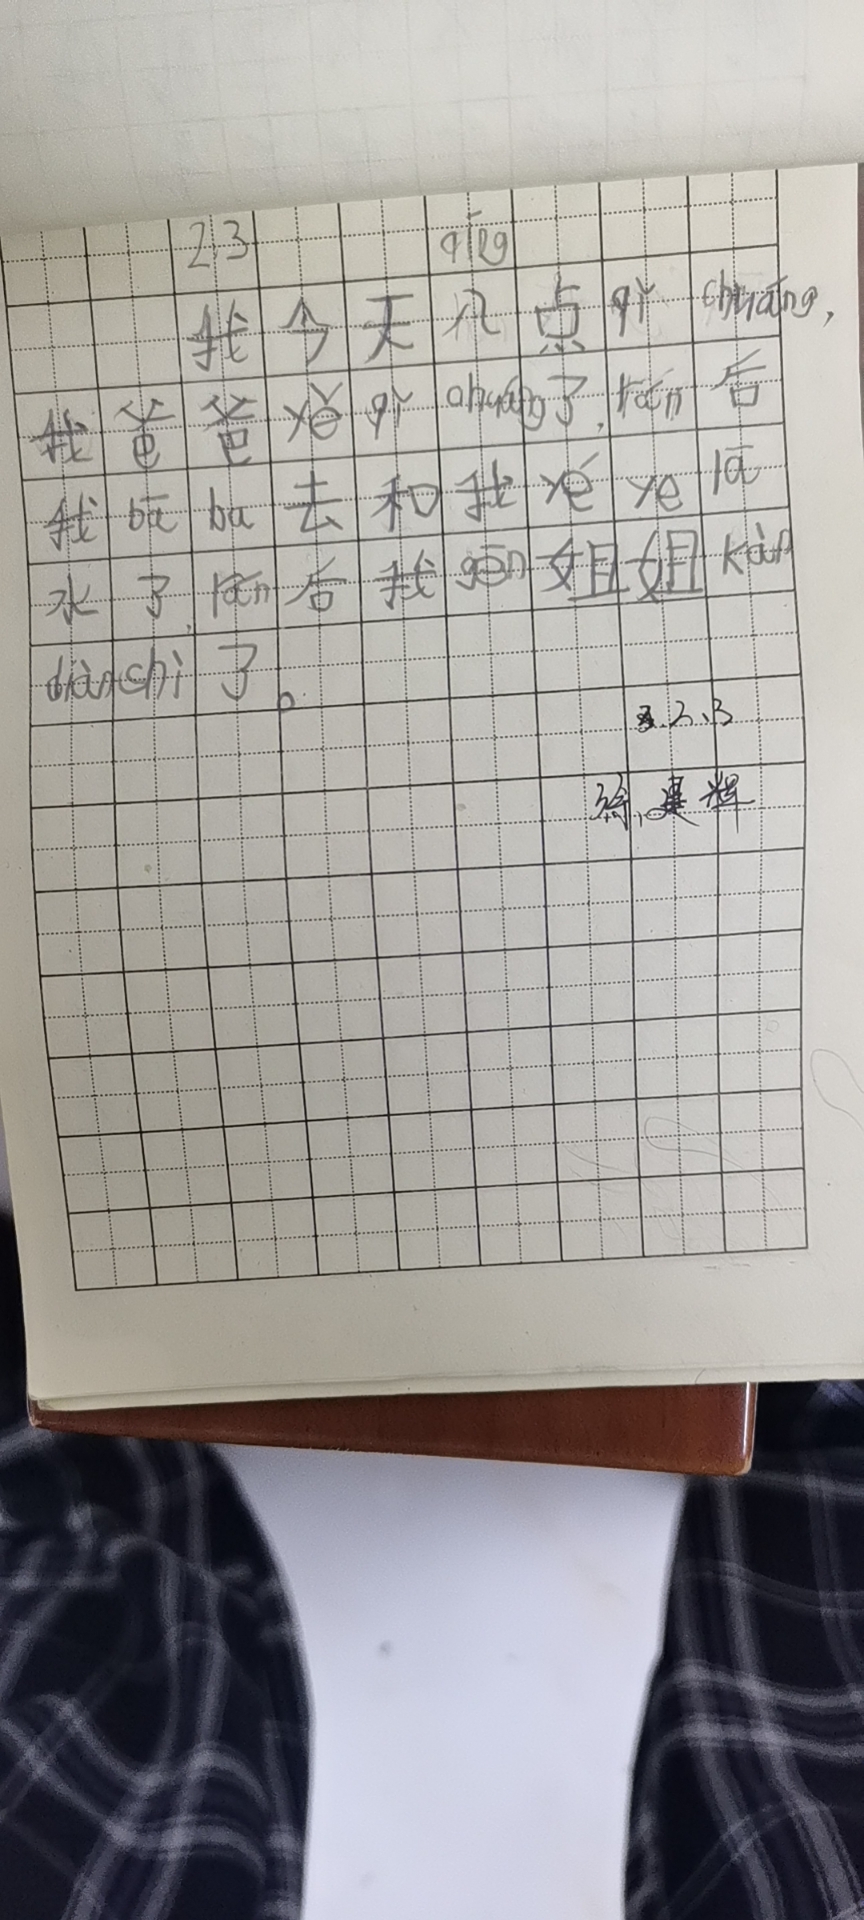 2.3 qīng
我今天八点qǐ chuáng,
我爸爸yě qǐ chuáng了,rán后
我bà ba去和我yé ye lā
水了,rán后我gēn姐姐kàn
diàn shì了。
2.3